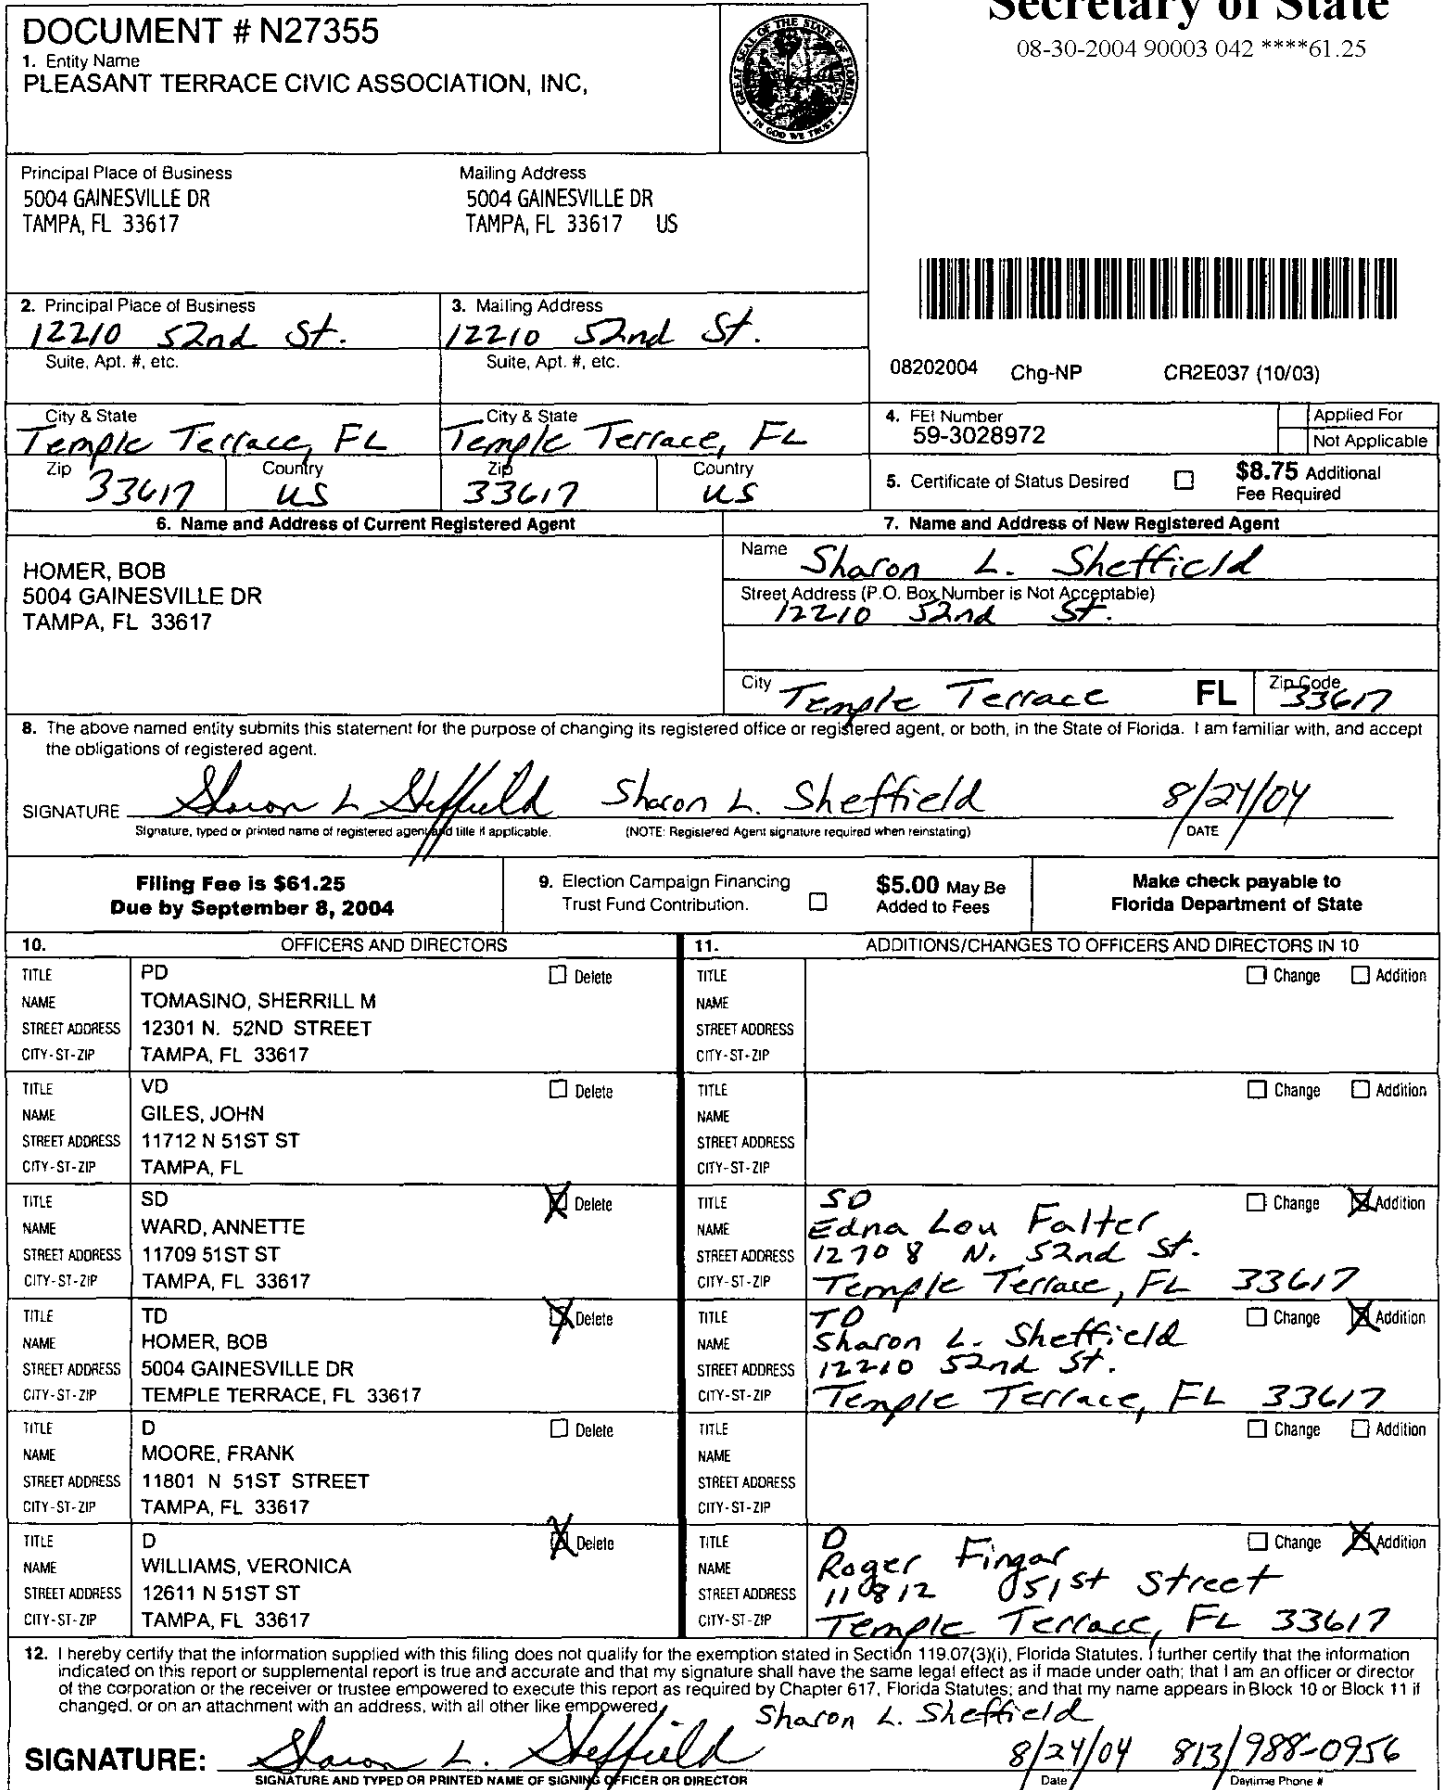 Secretary of State
08-30-2004 90003 042 ****61.25
DOCUMENT # N27355
1. Entity Name
PLEASANT TERRACE CIVIC ASSOCIATION, INC,
GREAT SEAL OF THE STATE OF FLORIDA
IN GOD WE TRUST
Principal Place of Business
5004 GAINESVILLE DR
TAMPA, FL 33617
Mailing Address
5004 GAINESVILLE DR
TAMPA, FL 33617 US
2. Principal Place of Business
12210 52nd St.
Suite, Apt. #, etc.
City & State
Temple Terrace, FL
Zip 33617 Country US
3. Mailing Address
12210 52nd St.
Suite, Apt. #, etc.
City & State
Temple Terrace, FL
Zip 33617 Country US
08202004 Chg-NP CR2E037 (10/03)
4. FEI Number
59-3028972
Applied For
Not Applicable
5. Certificate of Status Desired
$8.75 Additional
Fee Required
6. Name and Address of Current Registered Agent
HOMER, BOB
5004 GAINESVILLE DR
TAMPA, FL 33617
7. Name and Address of New Registered Agent
Name Sharon L. Sheffield
Street Address (P.O. Box Number is Not Acceptable)
12210 52nd St.
City Temple Terrace FL Zip Code 33617
8. The above named entity submits this statement for the purpose of changing its registered office or registered agent, or both, in the State of Florida. I am familiar with, and accept
the obligations of registered agent.
SIGNATURE Sharon L Sheffield Sharon L. Sheffield 8/24/04
Signature, typed or printed name of registered agent and title if applicable. (NOTE: Registered Agent signature required when reinstating) DATE
Filing Fee is $61.25
Due by September 8, 2004
9. Election Campaign Financing
Trust Fund Contribution.
$5.00 May Be
Added to Fees
Make check payable to
Florida Department of State
10. OFFICERS AND DIRECTORS
TITLE PD Delete
NAME TOMASINO, SHERRILL M
STREET ADDRESS 12301 N. 52ND STREET
CITY-ST-ZIP TAMPA, FL 33617
TITLE VD Delete
NAME GILES, JOHN
STREET ADDRESS 11712 N 51ST ST
CITY-ST-ZIP TAMPA, FL
TITLE SD Delete
NAME WARD, ANNETTE
STREET ADDRESS 11709 51ST ST
CITY-ST-ZIP TAMPA, FL 33617
TITLE TD Delete
NAME HOMER, BOB
STREET ADDRESS 5004 GAINESVILLE DR
CITY-ST-ZIP TEMPLE TERRACE, FL 33617
TITLE D Delete
NAME MOORE, FRANK
STREET ADDRESS 11801 N 51ST STREET
CITY-ST-ZIP TAMPA, FL 33617
TITLE D Delete
NAME WILLIAMS, VERONICA
STREET ADDRESS 12611 N 51ST ST
CITY-ST-ZIP TAMPA, FL 33617
11. ADDITIONS/CHANGES TO OFFICERS AND DIRECTORS IN 10
TITLE Change Addition
NAME
STREET ADDRESS
CITY-ST-ZIP
TITLE Change Addition
NAME
STREET ADDRESS
CITY-ST-ZIP
TITLE SD Change Addition
NAME Edna Lou Falter
STREET ADDRESS 12708 N. 52nd St.
CITY-ST-ZIP Temple Terrace, FL 33617
TITLE TD Change Addition
NAME Sharon L. Sheffield
STREET ADDRESS 12210 52nd St.
CITY-ST-ZIP Temple Terrace, FL 33617
TITLE Change Addition
NAME
STREET ADDRESS
CITY-ST-ZIP
TITLE D Change Addition
NAME Roger Fingar
STREET ADDRESS 51st Street
CITY-ST-ZIP Temple Terrace, FL 33617
12. I hereby certify that the information supplied with this filing does not qualify for the exemption stated in Section 119.07(3)(i), Florida Statutes. I further certify that the information
indicated on this report or supplemental report is true and accurate and that my signature shall have the same legal effect as if made under oath; that I am an officer or director
of the corporation or the receiver or trustee empowered to execute this report as required by Chapter 617, Florida Statutes; and that my name appears in Block 10 or Block 11 if
changed, or on an attachment with an address, with all other like empowered.
Sharon L. Sheffield
SIGNATURE: Sharon L. Sheffield 8/24/04 813/988-0956
SIGNATURE AND TYPED OR PRINTED NAME OF SIGNING OFFICER OR DIRECTOR Date Daytime Phone #